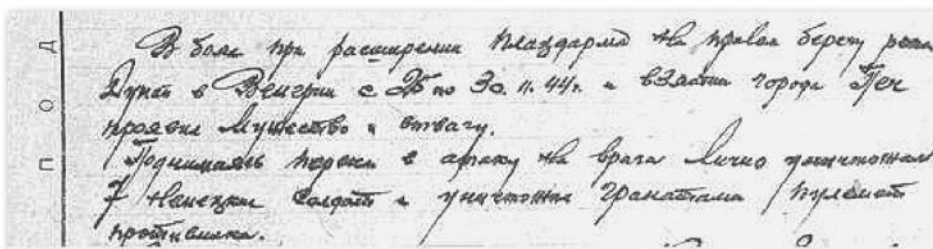 В боях при расширении плацдарма на правом берегу реки
Дунай в Венгрии с 25 по 30.11.44г. и взятии города Печ
проявил мужество и отвагу.
Поднимаясь первым в атаку на врага лично уничтожил
7 немецких солдат и уничтожил гранатами пулемет
противника.
П О Д